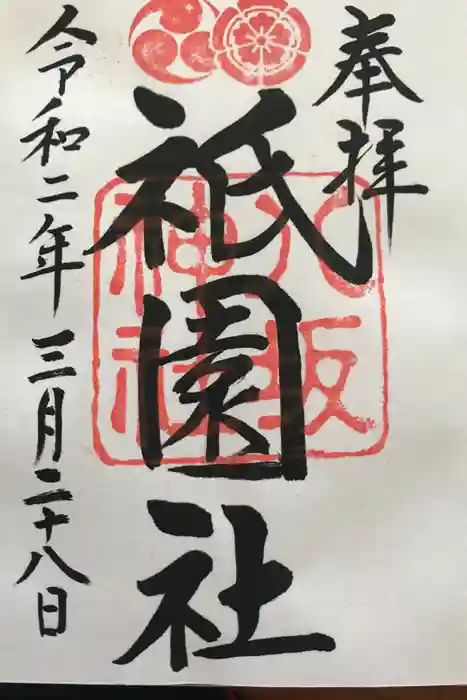 奉拝
祇園社
八坂
神社
令和二年三月二十八日